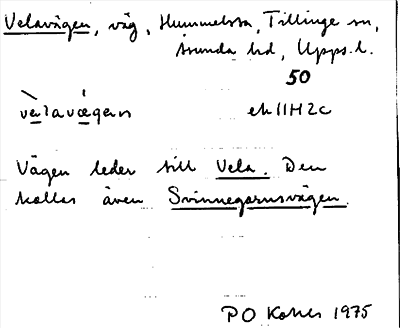 Velavägen, väg, Hummelsta, Tillinge sn,
Åsunda hd, Upps. l.
50
ek 11H2c
Vägen leder till Vela. Den
kallas även Svinnegarnsvägen.
PO 1975